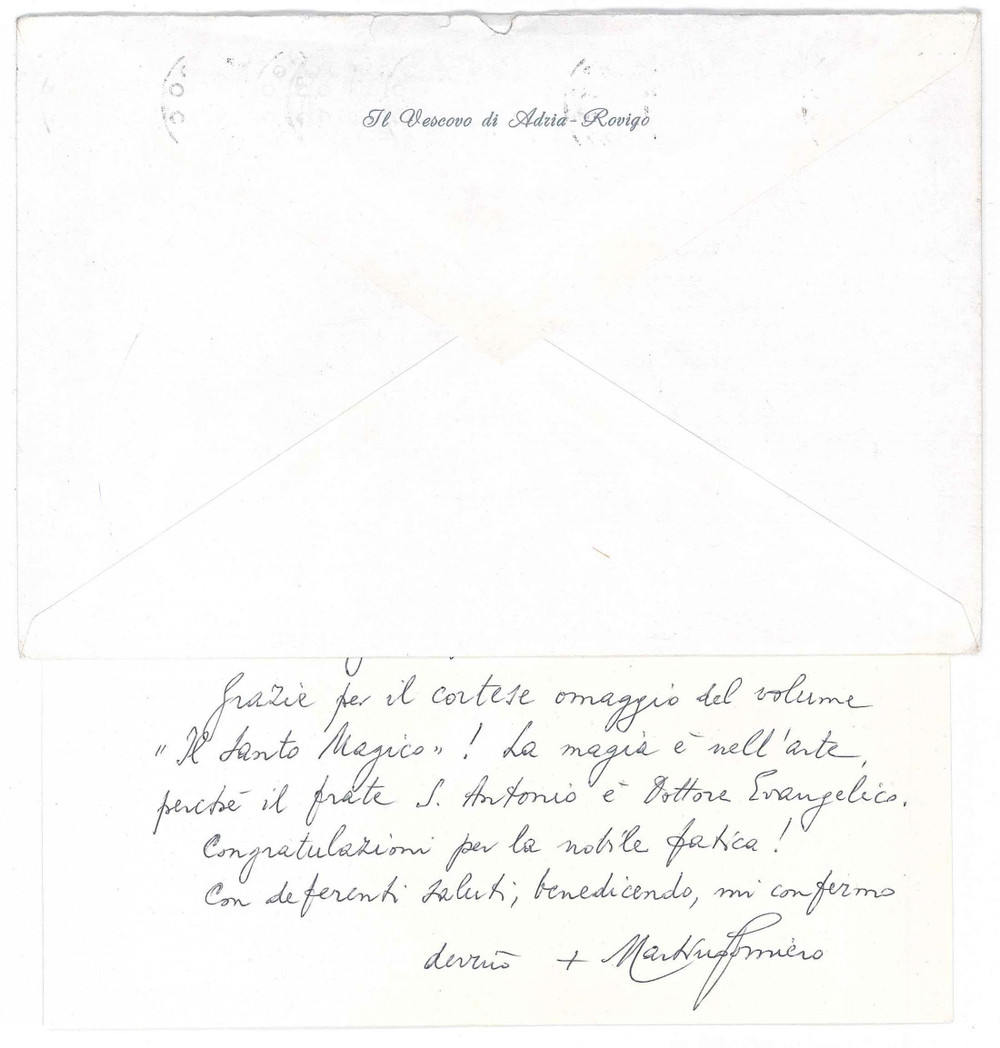 Il Vescovo di Adria-Rovigo
Grazie per il cortese omaggio del volume
"Il Santo Magico"! La magia è nell'arte,
perché il frate S. Antonio è Dottore Evangelico.
Congratulazioni per la nobile fatica!
Con deferenti saluti, benedicendo, mi confermo
dev.mo + Martino Gomiero